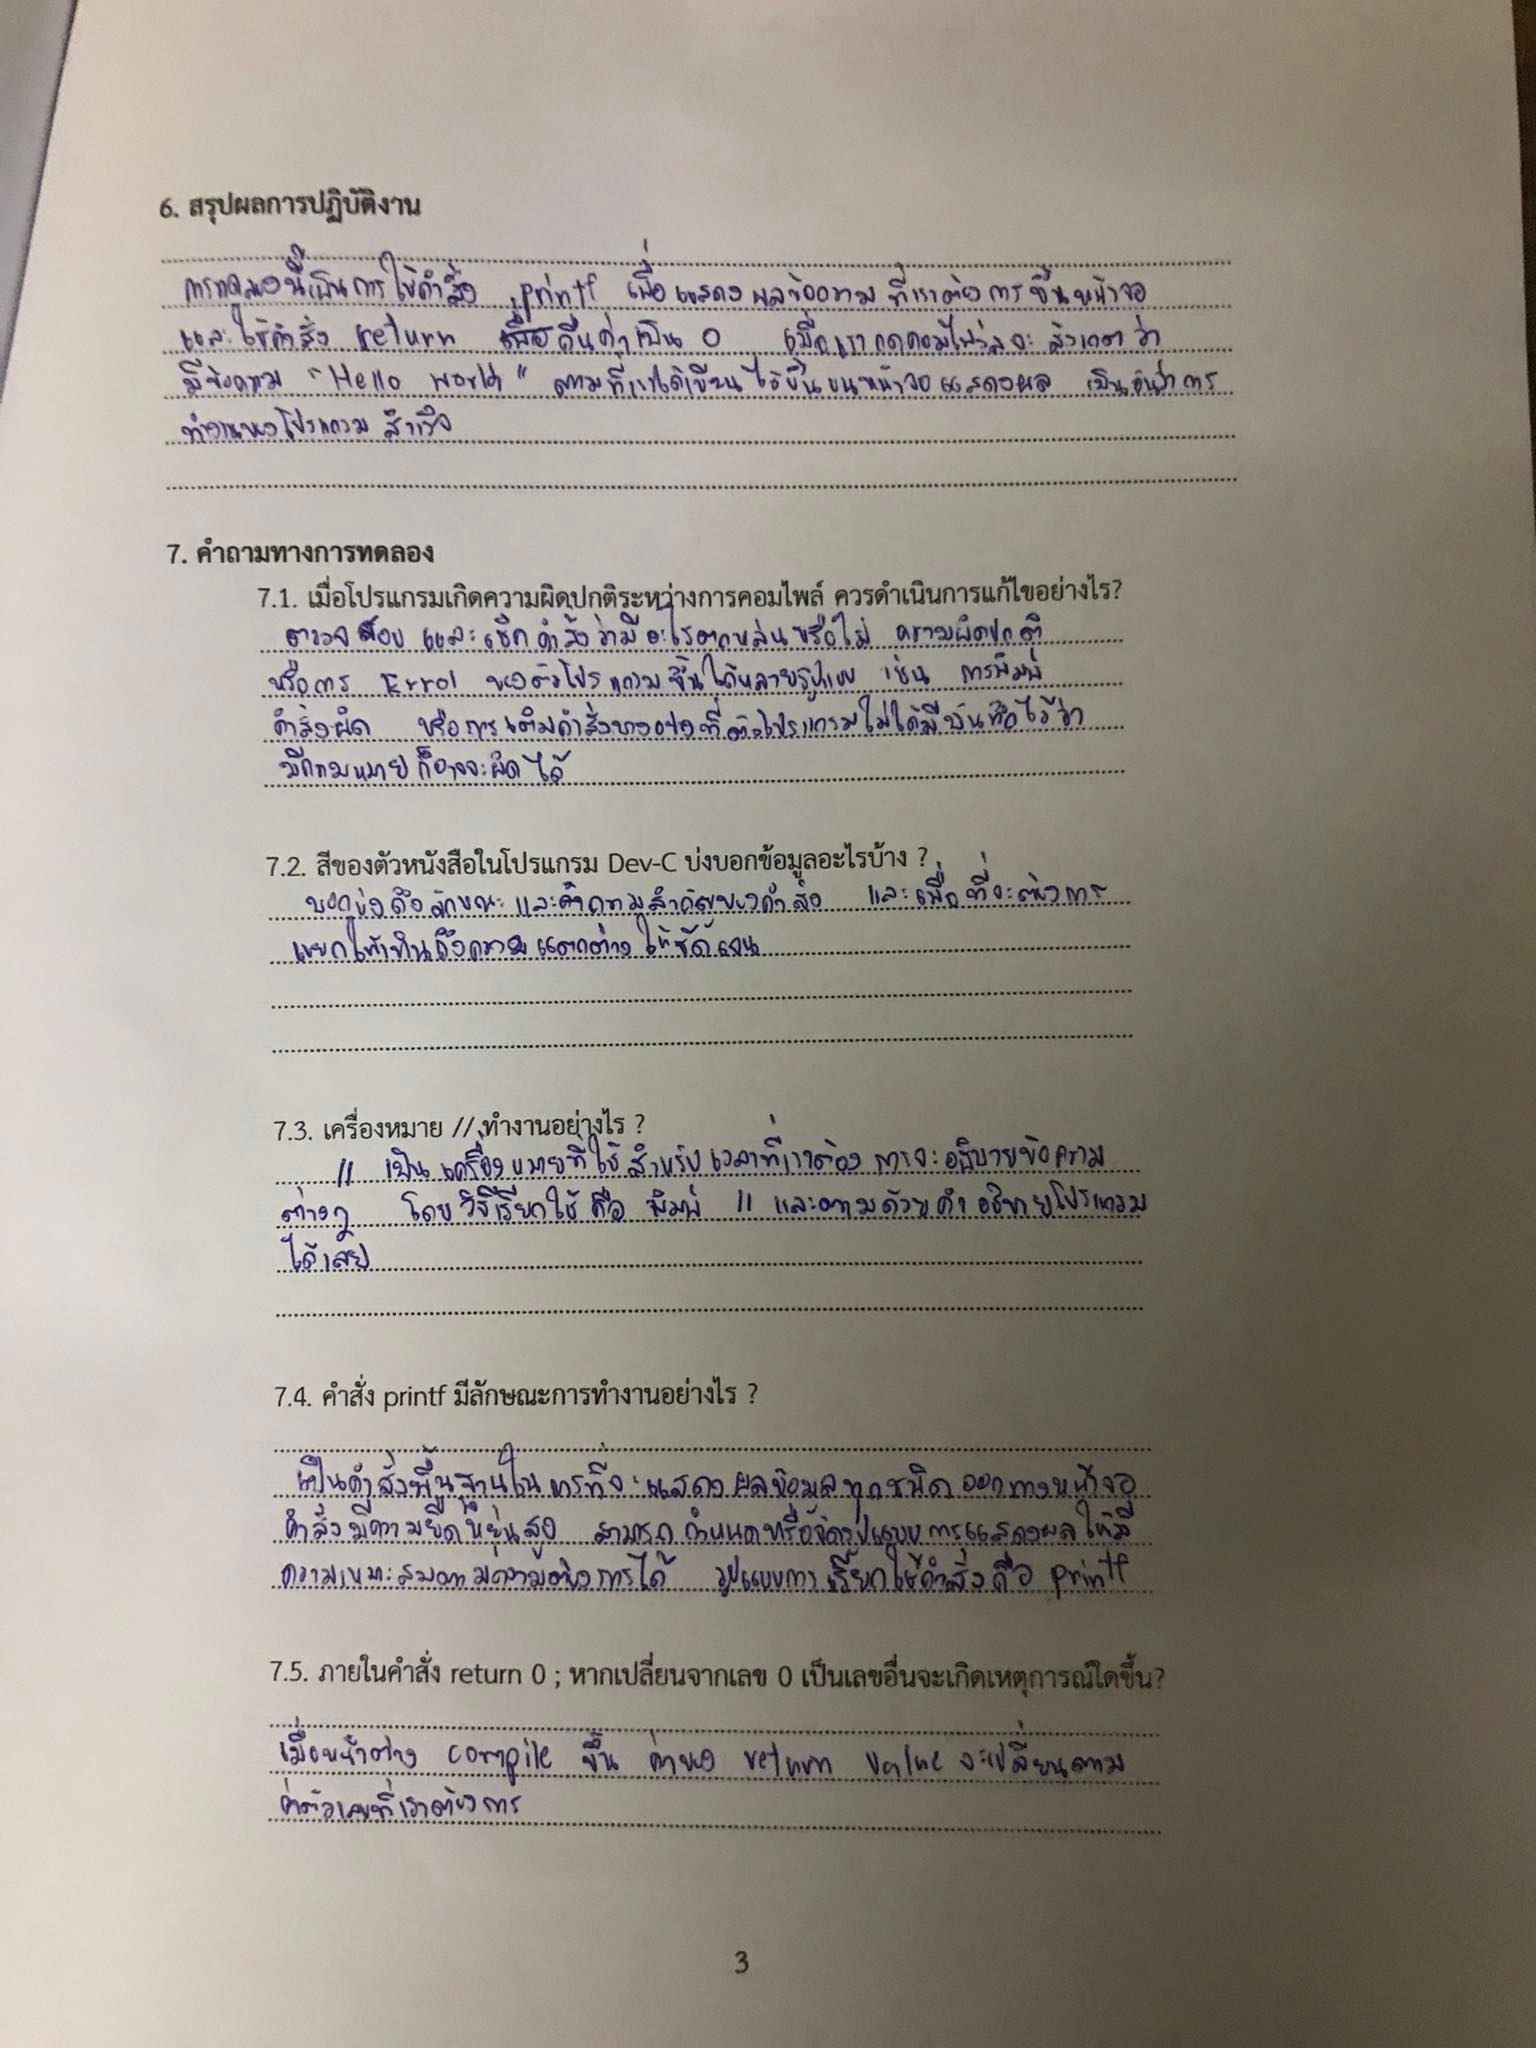 6. สรุปผลการปฏิบัติงาน
การทดลองนี้เป็นการใช้คำสั่ง printf เพื่อแสดงผลข้อความที่เราต้องการขึ้นหน้าจอ
และใช้คำสั่ง return เพื่อคืนค่าเป็น 0 เมื่อเรากดคอมไพล์จะสังเกตว่า
มีข้อความ "Hello world" ตามที่เราได้เขียนไว้ขึ้นบนหน้าจอแสดงผล เป็นอันว่าการ
ทำงานของโปรแกรมสำเร็จ
7. คำถามทางการทดลอง
7.1. เมื่อโปรแกรมเกิดความผิดปกติระหว่างการคอมไพล์ ควรดำเนินการแก้ไขอย่างไร?
ตรวจสอบ และเช็คคำสั่งว่ามีอะไรตกหล่นหรือไม่ ความผิดปกติ
หรือการ Error ของตัวโปรแกรมขึ้นได้หลายรูปแบบ เช่น การพิมพ์
คำสั่งผิด หรือการเติมคำสั่งบางอย่างที่ตัวโปรแกรมไม่ได้มีบันทึกไว้ว่า
มีความหมายก็อาจจะผิดได้
7.2. สีของตัวหนังสือในโปรแกรม Dev-C บ่งบอกข้อมูลอะไรบ้าง ?
บอกบ่งถึงลักษณะและความสำคัญของคำสั่ง และเพื่อที่จะต้องการ
แยกให้เห็นถึงความแตกต่างให้ชัดเจน
7.3. เครื่องหมาย // ทำงานอย่างไร ?
// เป็นเครื่องหมายที่ใช้สำหรับเวลาที่เราต้องการจะอธิบายข้อความ
ต่างๆ โดยวิธีเรียกใช้คือ พิมพ์ // และตามด้วยคำอธิบายโปรแกรม
ได้เลย
7.4. คำสั่ง printf มีลักษณะการทำงานอย่างไร ?
เป็นคำสั่งพื้นฐานในการที่จะแสดงผลข้อมูลทุกชนิดออกทางหน้าจอ
คำสั่งมีความยืดหยุ่นสูง สามารถกำหนดหรือจัดรูปแบบการแสดงผลให้มี
ความเหมาะสมตามความต้องการได้ รูปแบบการเรียกใช้คำสั่งคือ printf
7.5. ภายในคำสั่ง return 0 ; หากเปลี่ยนจากเลข 0 เป็นเลขอื่นจะเกิดเหตุการณ์ใดขึ้น?
เมื่อหน้าต่าง compile ขึ้น ค่าของ return value จะเปลี่ยนตาม
ค่าตัวเลขที่เราต้องการ
3